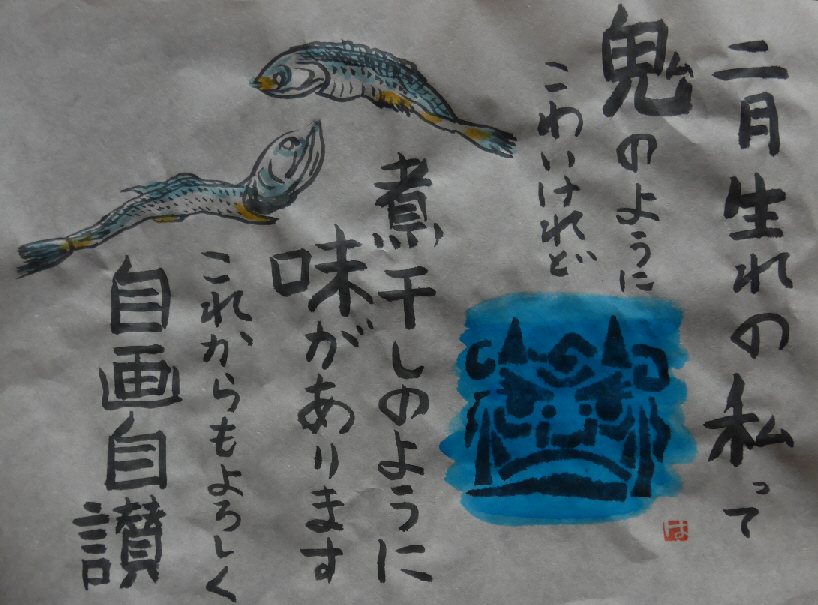 二月生れの私って
鬼のように
こわいけれど
煮干しのように
味があります
これからもよろしく
自画自讃
は